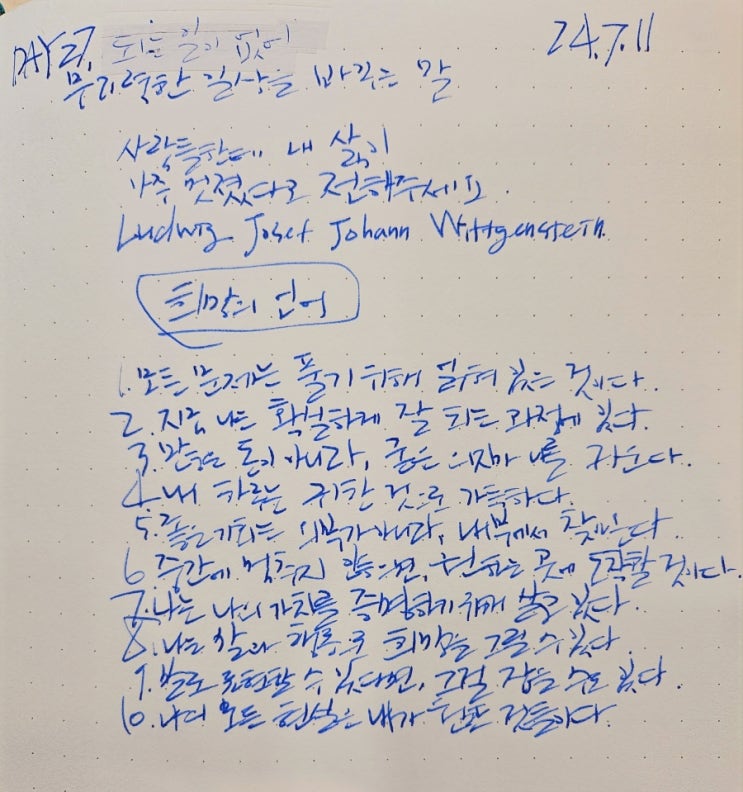 DAY 27. 되는 일이 없어 24.7.11
무기력한 일상을 바꾸는 말
사람들한테 내 삶이
아주 멋졌다고 전해주세요.
Ludwig Josef Johann Wittgenstein.
희망의 언어
1. 모든 문제는 풀기 위해 얽혀 있는 것이다.
2. 지금 나는 확실하게 잘 되는 과정에 있다.
3. 많은 돈이 아니라, 좋은 의지가 나를 키운다.
4. 내 하루는 귀한 것으로 가득하다.
5. 좋은 기회는 외부가 아니라, 내부에서 찾는다
6. 중간에 멈추지 않으면, 원하는 곳에 도착할 것이다.
7. 나는 나의 가치를 증명하기 위해 살고 있다.
8. 나는 삶과 하루로 희망을 그릴 수 있다.
9. 말로 표현할 수 있다면, 그걸 잡을 수도 있다.
10. 나의 모든 현실은 내가 원한 것들이다.